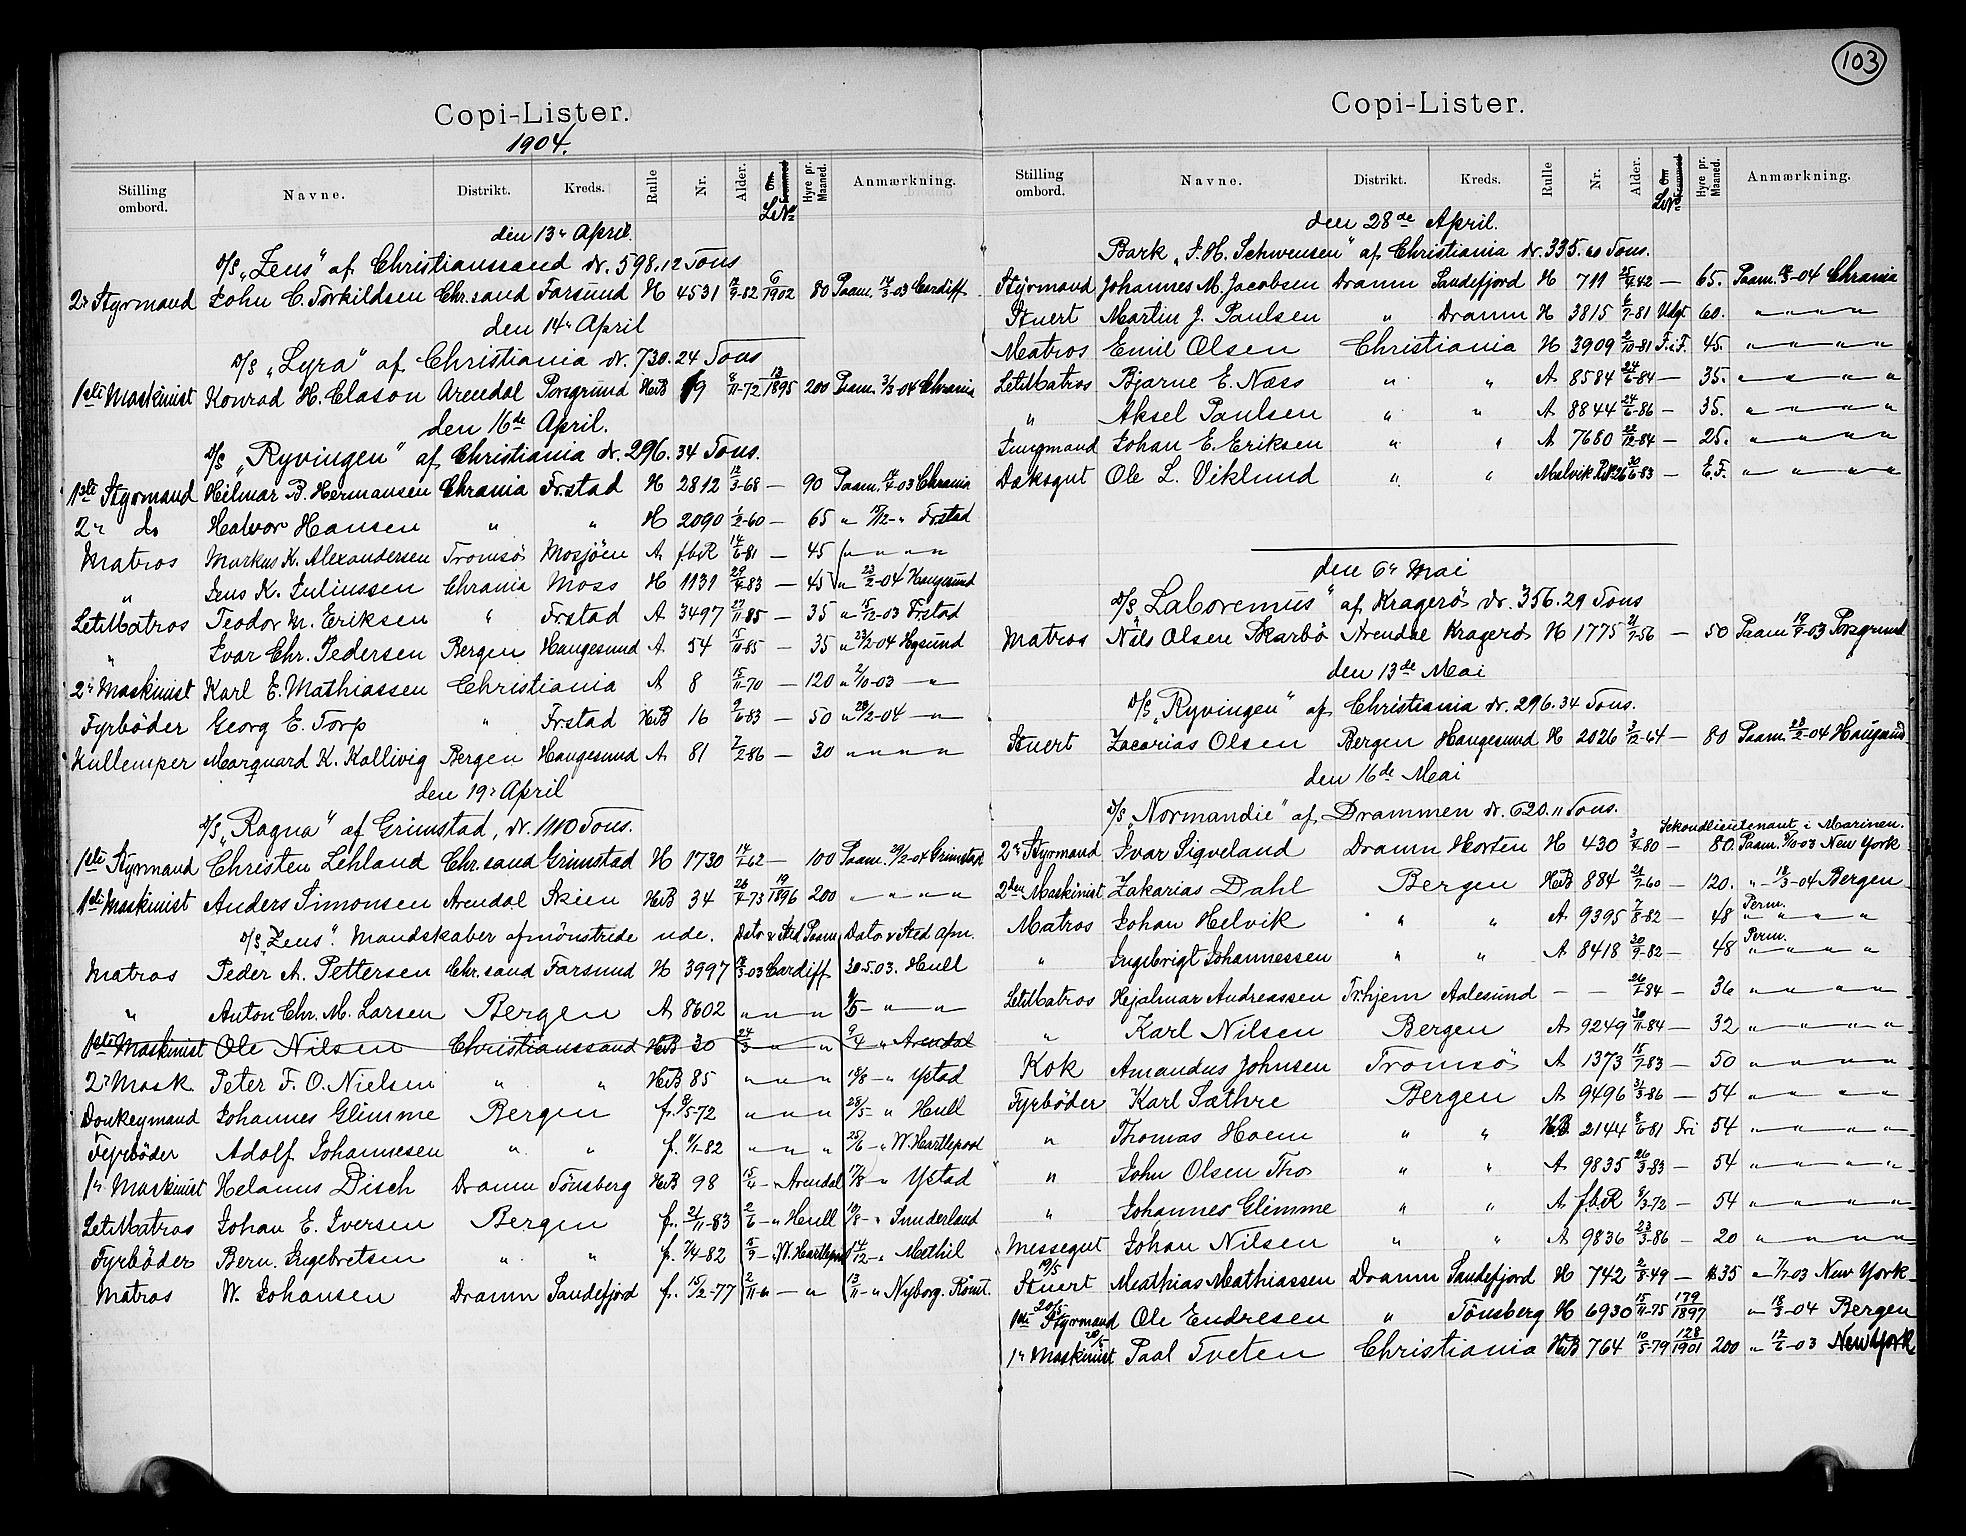 103
Copi-Lister.
1904.
Stilling ombord. Navne. Distrikt. Kreds. Rulle Nr. Alder. Om fremmed Le No Hyre pr. Maaned. Anmærkning.
den 13r April.
D/S „Zeus" af Christianssand dr. 598.12 Tons
2r Styrmand John C. Torkildsen Chr.sand Farsund H 4531 -82 6/1902 80 Paam. -03 Cardiff
den 14r April
D/S „Lyra" af Christiania dr. 730.24 Tons
1ste Maskinist Konrad H. Clason Arendal Porsgrund HrB 19 8/11-72 13/1895 200 Paam. 3/3-04 Chrania
den 16de April.
D/S „Ryvingen" af Christiania dr. 296.34 Tons.
1ste Styrmand Hilmar B. Hermansen Chrania Fr.stad H 2812 12/3-68 — 90 Paam. -03 Chrania
2r do Halvor Hansen " " H 2090 1/2-60 — 65 " 15/12-" Frstad
Matros Markus K. Alexandersen Tromsö Mosjöen A fbR 14/6-81 — 45 " " " "
" Jens K. Juliussen Chrania Moss H 1131 29/4-83 — 45 " 23/2-04 Haugesund
LetMatros Teodor M. Eriksen " Frstad A 3497 27/11-85 — 35 " 15/12-03 Frstad
" Ivar Chr. Pedersen Bergen Haugesund A 54 15/11-85 — 35 " 23/2-04 Hgsund
2r Maskinist Karl E. Mathiassen Christiania A 8 15/11-70 — 120 " 2/10-03 — "
Fyrböder Georg E. Torp " Frstad HrB 16 9/6-83 — 50 " 23/2-04 — "
Kullemper Marquard K. Kallivig Bergen Haugesund A 81 7/2-86 — 30 " " " "
den 19r April
D/S „Ragna" af Grimstad, dr. 1110 Tons.
1ste Styrmand Christen Lehland Chr.sand Grimstad H 1730 -62 — 100 Paam. 29/2-04 Grimstad
1ste Maskinist Anders Simonsen Arendal Skien HrB 34 -73 19/1896 200 " " " "
D/S „Zeus". Mandskaber afmönstrede ude. Dato & Sted Paam. Dato & Sted afm.
Matros Peder A. Pettersen Chr.sand Farsund H 3997 -03 Cardiff 20.5.03. Hull
" Anton Chr. M. Larsen Bergen A 8602 " " " /5 — " — "
1ste Maskinist Ole Nilsen Christianssand HrB 30 24/3 " " 9/4 " Arendal
2r Mask Peter F. O. Nielsen " " HrB 85 " " " 18/8 — " Ystad
Donkeymand Johannes Glimme Bergen f. 8/5-72 " " " 28/5 — " Hull
Fyrböder Adolf Johannesen " " f. -82 " " " 25/6 — " W. Hartlepool
1r Maskinist Helanus Disch Dramn Tönsberg HrB 98 15/4 — Arendal 17/8 — " Ystad
LetMatros Johan E. Iversen Bergen f. 21/11-83 2/6 — " Hull 19/8 — " Sunderland
Fyrböder Bern. Ingebretsen " " f. 7/4-82 15/9 — W. Hartlepool 14/12 — " Methil
Matros W. Johansen Dramn Sandefjord f. 15/2-77 2/11 " — " 13/11 — " Nyborg.
Copi-Lister.
Stilling ombord. Navne. Distrikt. Kreds. Rulle Nr. Alder. Om fremmed Le No Hyre pr. Maaned. Anmærkning.
den 28de April.
Bark „J. H. Schwensen" af Christiania dr. 335.60 Tons.
Styrmand Johannes M. Jacobsen Dramn Sandefjord H 711 -42 — 65. Paam. -04 Chrania
Stuert Martin J. Paulsen " Dramn H 3815 6/7-81 Udgt 60. " " " "
Matros Emil Olsen Christiania H 3909 2/10-81 F.i F. 45. " " " "
LetMatros Bjarne E. Næss " " A 8584 24/6-84 — 35. " " " "
" Aksel Paulsen " " A 8844 24/6-86 — 35. " " " "
Jungmand Johan E. Eriksen " " A 7680 22/12-84 — 25. " " " "
Dæksgut Ole L. Viklund " " Malvik 30/6-83 — E.F. " " " "
den 6r Mai
D/S „Laboremus" af Kragerö dr. 356.29 Tons
Matros Nils Olsen Skarbö Arendal Kragerö H 1775 21/7-56 — 50 Paam. -03 Porsgrund
den 13de Mai
D/S „Ryvingen" af Christiania dr. 296.34 Tons.
Stuert Zacarias Olsen Bergen Haugesund H 2026 3/12-64 — 80 Paam. 23/2-04 Haugsund
den 16de Mai
D/S „Normandie" af Drammen dr. 620.11 Tons.
Sekondlieutenant i Marinen.
2r Styrmand Ivar Siqveland Dramn Horten H 430 -80 — 80. Paam. -03 New York
2den Maskinist Zakarias Dahl Bergen HrB 884 21/7-60 — 120. " 18/3-04 Bergen
Matros Johan Helvik " " A 9395 7/8-82 — 48 Perm. " " " "
" Ingebrigt Johannessen " " A 8418 30/9-82 — 48 Perm. " " " "
LetMatros Hejalmar Andreassen Tr.hjem Aalesund — — 26/7-84 — 36 " " " "
" Karl Nilsen Bergen A 9249 30/11-84 — 32 " " " "
Kok Amandus Johnsen Tromsö A 1373 15/7-83 — 50 " " " "
Fyrböder Karl Sæthre Bergen A 9496 31/3-86 — 54 " " " "
" Thomas Hoem " " HrB 2144 8/6-81 Fri 54 " " " "
" John Olsen Tho " " A 9835 26/3-83 — 54 " " " "
" Johannes Glimme " " A fbR 8/3-72 — 54 " " " "
Messegut Johan Nilsen " " A 9836 23/3-86 — 20 " " " "
19/5
Stuert Mathias Mathiassen Dramn Sandefjord H 742 2/8-49 — 135 " 7/7-03 New York
20/5
1ste Styrmand Ole Endresen " Tönsberg H 6930 15/11-75 179/1897 " 18/3-04 Bergen
20/5
1r Maskinist Paal Tveten Christiania HrB 764 10/5-79 128/1901 200 " 12/6-03 New York